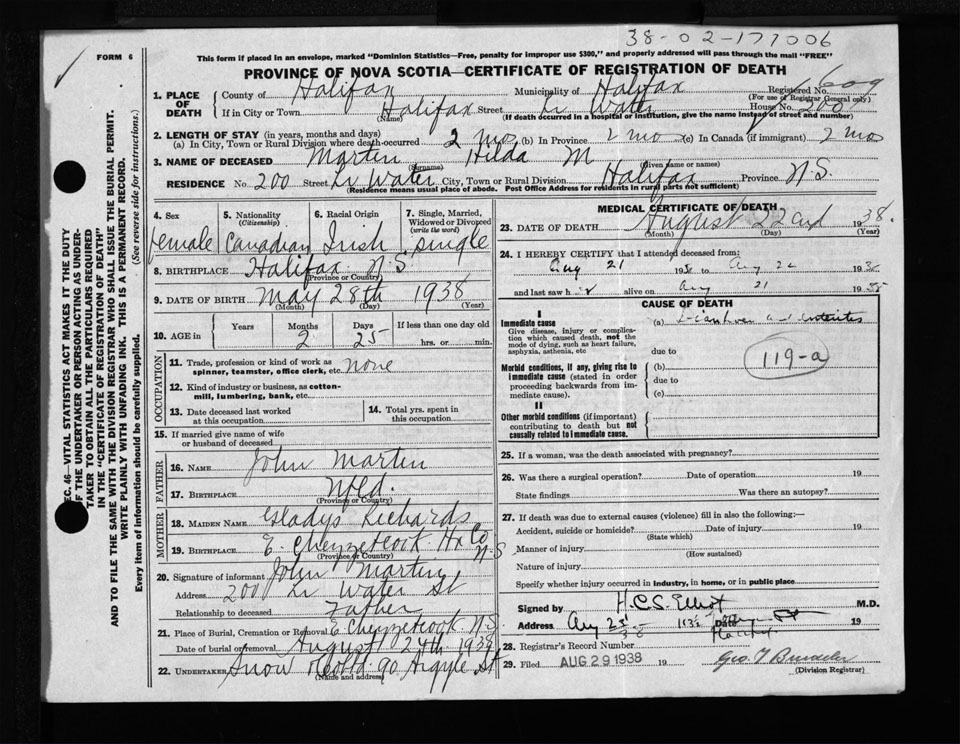 38-02-177006
FORM 6
This form if placed in an envelope, marked "Dominion Statistics—Free, penalty for improper use $300," and properly addressed will pass through the mail "FREE"
PROVINCE OF NOVA SCOTIA—CERTIFICATE OF REGISTRATION OF DEATH
1. PLACE OF DEATH
County of Halifax Municipality of Halifax Registered No. 609
(For use of Registrar General only)
If in City or Town Halifax Street Lr Water House No. 200
(Name) (If death occurred in a hospital or institution, give the name instead of street and number)
2. LENGTH OF STAY (in years, months and days)
(a) In City, Town or Rural Division where death occurred 2 mos (b) In Province 2 mo (c) In Canada (if immigrant) 2 mo
3. NAME OF DECEASED Marten Hilda M
(Surname) (Given name or names)
RESIDENCE No. 200 Street Lr Water City, Town or Rural Division Halifax Province N.S.
(Residence means usual place of abode. Post Office Address for residents in rural parts not sufficient)
4. Sex female
5. Nationality (Citizenship) Canadian
6. Racial Origin Irish
7. Single, Married, Widowed or Divorced (write the word) single
8. BIRTHPLACE Halifax N.S.
(Province or Country)
9. DATE OF BIRTH May 28th 1938
(Month) (Day) (Year)
10. AGE in Years Months 2 Days 25 If less than one day old hrs. or min.
OCCUPATION
11. Trade, profession or kind of work as spinner, teamster, office clerk, etc. none
12. Kind of industry or business, as cotton-mill, lumbering, bank, etc.
13. Date deceased last worked at this occupation
14. Total yrs. spent in this occupation
15. If married give name of wife or husband of deceased
FATHER
16. NAME John Marten
17. BIRTHPLACE Nfld.
(Province or Country)
MOTHER
18. MAIDEN NAME Gladys Richards
19. BIRTHPLACE E. Chezzetcook Hx Co N-S
(Province or Country)
20. Signature of informant John Marten
Address 200 Lr Water St
Relationship to deceased Father
21. Place of Burial, Cremation or Removal E Chezzetcook N.S.
Date of burial or removal August 24th 1938
22. UNDERTAKER Snow & Co Ltd 90 Argyle St
(Name and address)
MEDICAL CERTIFICATE OF DEATH
23. DATE OF DEATH August 22nd 1938.
(Month) (Day) (Year)
24. I HEREBY CERTIFY that I attended deceased from:
Aug 21 1938 to Aug 22 1938
and last saw her alive on Aug 21 1938
CAUSE OF DEATH
I
Immediate cause
Give disease, injury or complication which caused death, not the mode of dying, such as heart failure, asphyxia, asthenia, etc
(a)
due to
119-a
Morbid conditions, if any, giving rise to immediate cause (stated in order proceeding backwards from immediate cause).
(b)
due to
(c)
II
Other morbid conditions (if important) contributing to death but not causally related to immediate cause.
25. If a woman, was the death associated with pregnancy?
26. Was there a surgical operation? Date of operation 19
State findings Was there an autopsy?
27. If death was due to external causes (violence) fill in also the following:—
Accident, suicide or homicide? Date of injury 19
(State which)
Manner of injury
(How sustained)
Nature of injury
Specify whether injury occurred in industry, in home, or in public place
Signed by H.C.S. Elliot M.D.
Address Aug 23 38 Date
28. Registrar's Record Number
29. Filed AUG 29 1938 19
(Division Registrar)
SEC. 46—VITAL STATISTICS ACT MAKES IT THE DUTY
OF THE UNDERTAKER OR PERSON ACTING AS UNDER-
TAKER TO OBTAIN ALL THE PARTICULARS REQUIRED
IN THE "CERTIFICATE OF REGISTRATION OF DEATH"
AND TO FILE THE SAME WITH THE DIVISION REGISTRAR WHO SHALL ISSUE THE BURIAL PERMIT.
WRITE PLAINLY WITH UNFADING INK. THIS IS A PERMANENT RECORD.
Every item of information should be carefully supplied. (See reverse side for instructions.)